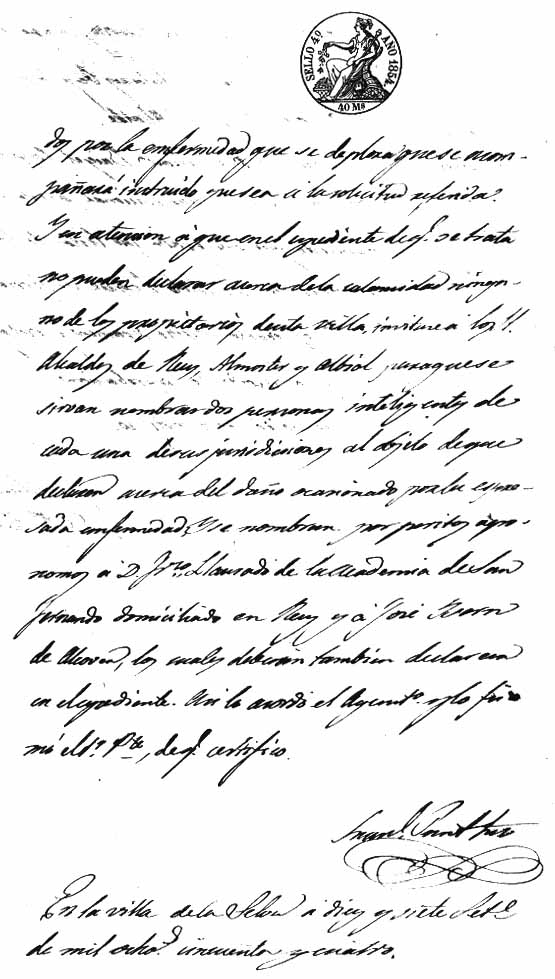 SELLO 4º AÑO 1854.
40 Ms
dos por la enfermedad que se deplora, que se acom-
pañará instruido que sea a la solicitud referida.
Y en atencion á que en el espediente de q.e se trata
no pueden declarar acerca de la calamidad ningu-
no de los propietarios de esta villa, invitese á los S.S.
Alcaldes de Reus, Almoster y Albiol para que se
sirvan nombrar dos personas inteligentes de
cada una de sus jurisdicciones al objeto de que
declaren acerca del daño ocasionado por la espre-
sada enfermedad; Y se nombran por peritos agro-
nomos a D. Fr.co Llauradó de la academia de San
Fernando domiciliado en Reus y á José
de Alcover, los cuales deberán tambien declarar
en el espediente. Asi lo acordó el Ayunt.º y lo fir-
mó el S.r P.te, de q.e certifico.
En la villa de la Selva á diez y siete Set.e
de mil ocho.s cincuenta y cuatro.